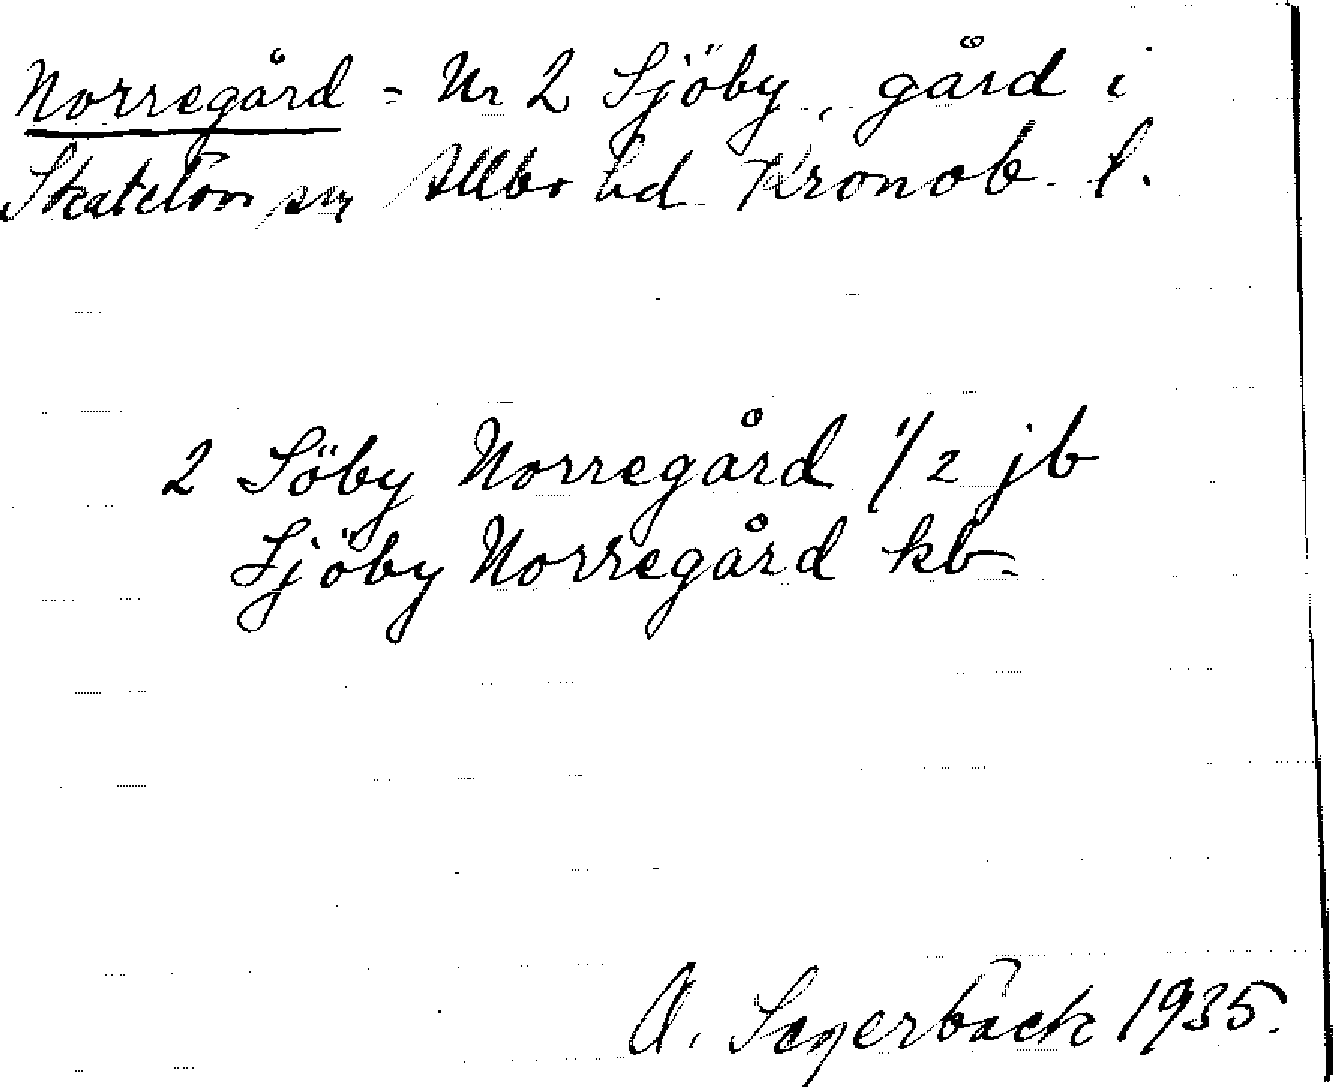 Norregård = Nr 2 Sjöby, gård i
Skatelöv sn Allbo hd Kronob. l.
2 Söby Norregård 1/2 jb
Sjöby Norregård kb.
A. Segerbäck 1935.